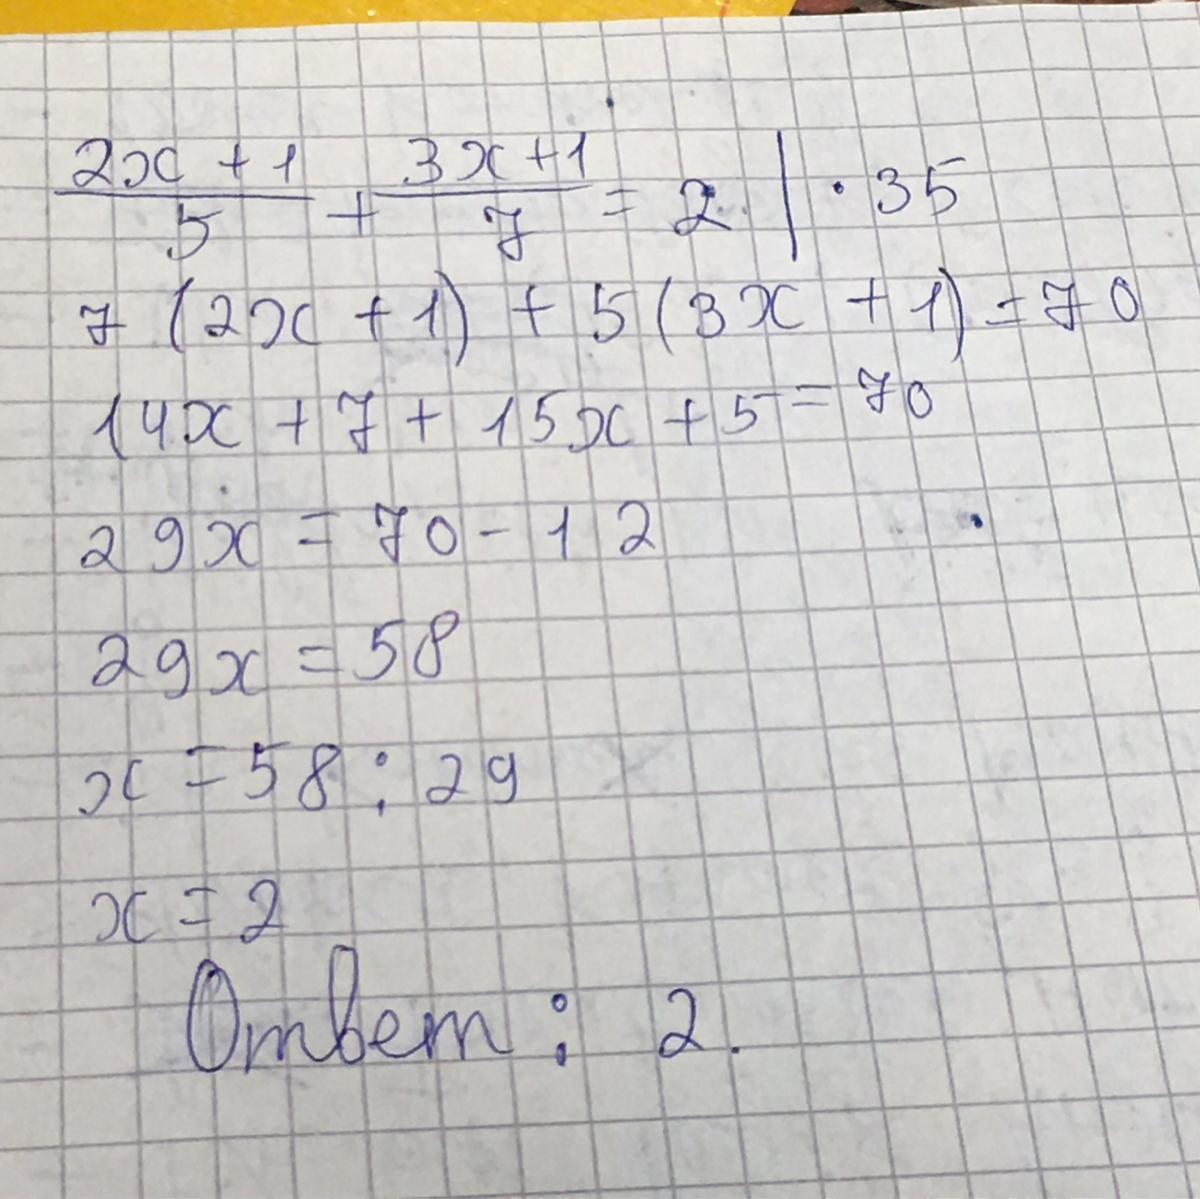 (2x + 1)/5 + (3x+1)/7 = 2 | · 35
7 (2x + 1) + 5 (3x + 1) = 70
14x + 7 + 15x + 5 = 70
29x = 70 - 12
29x = 58
x = 58 : 29
x = 2
Ответ : 2.